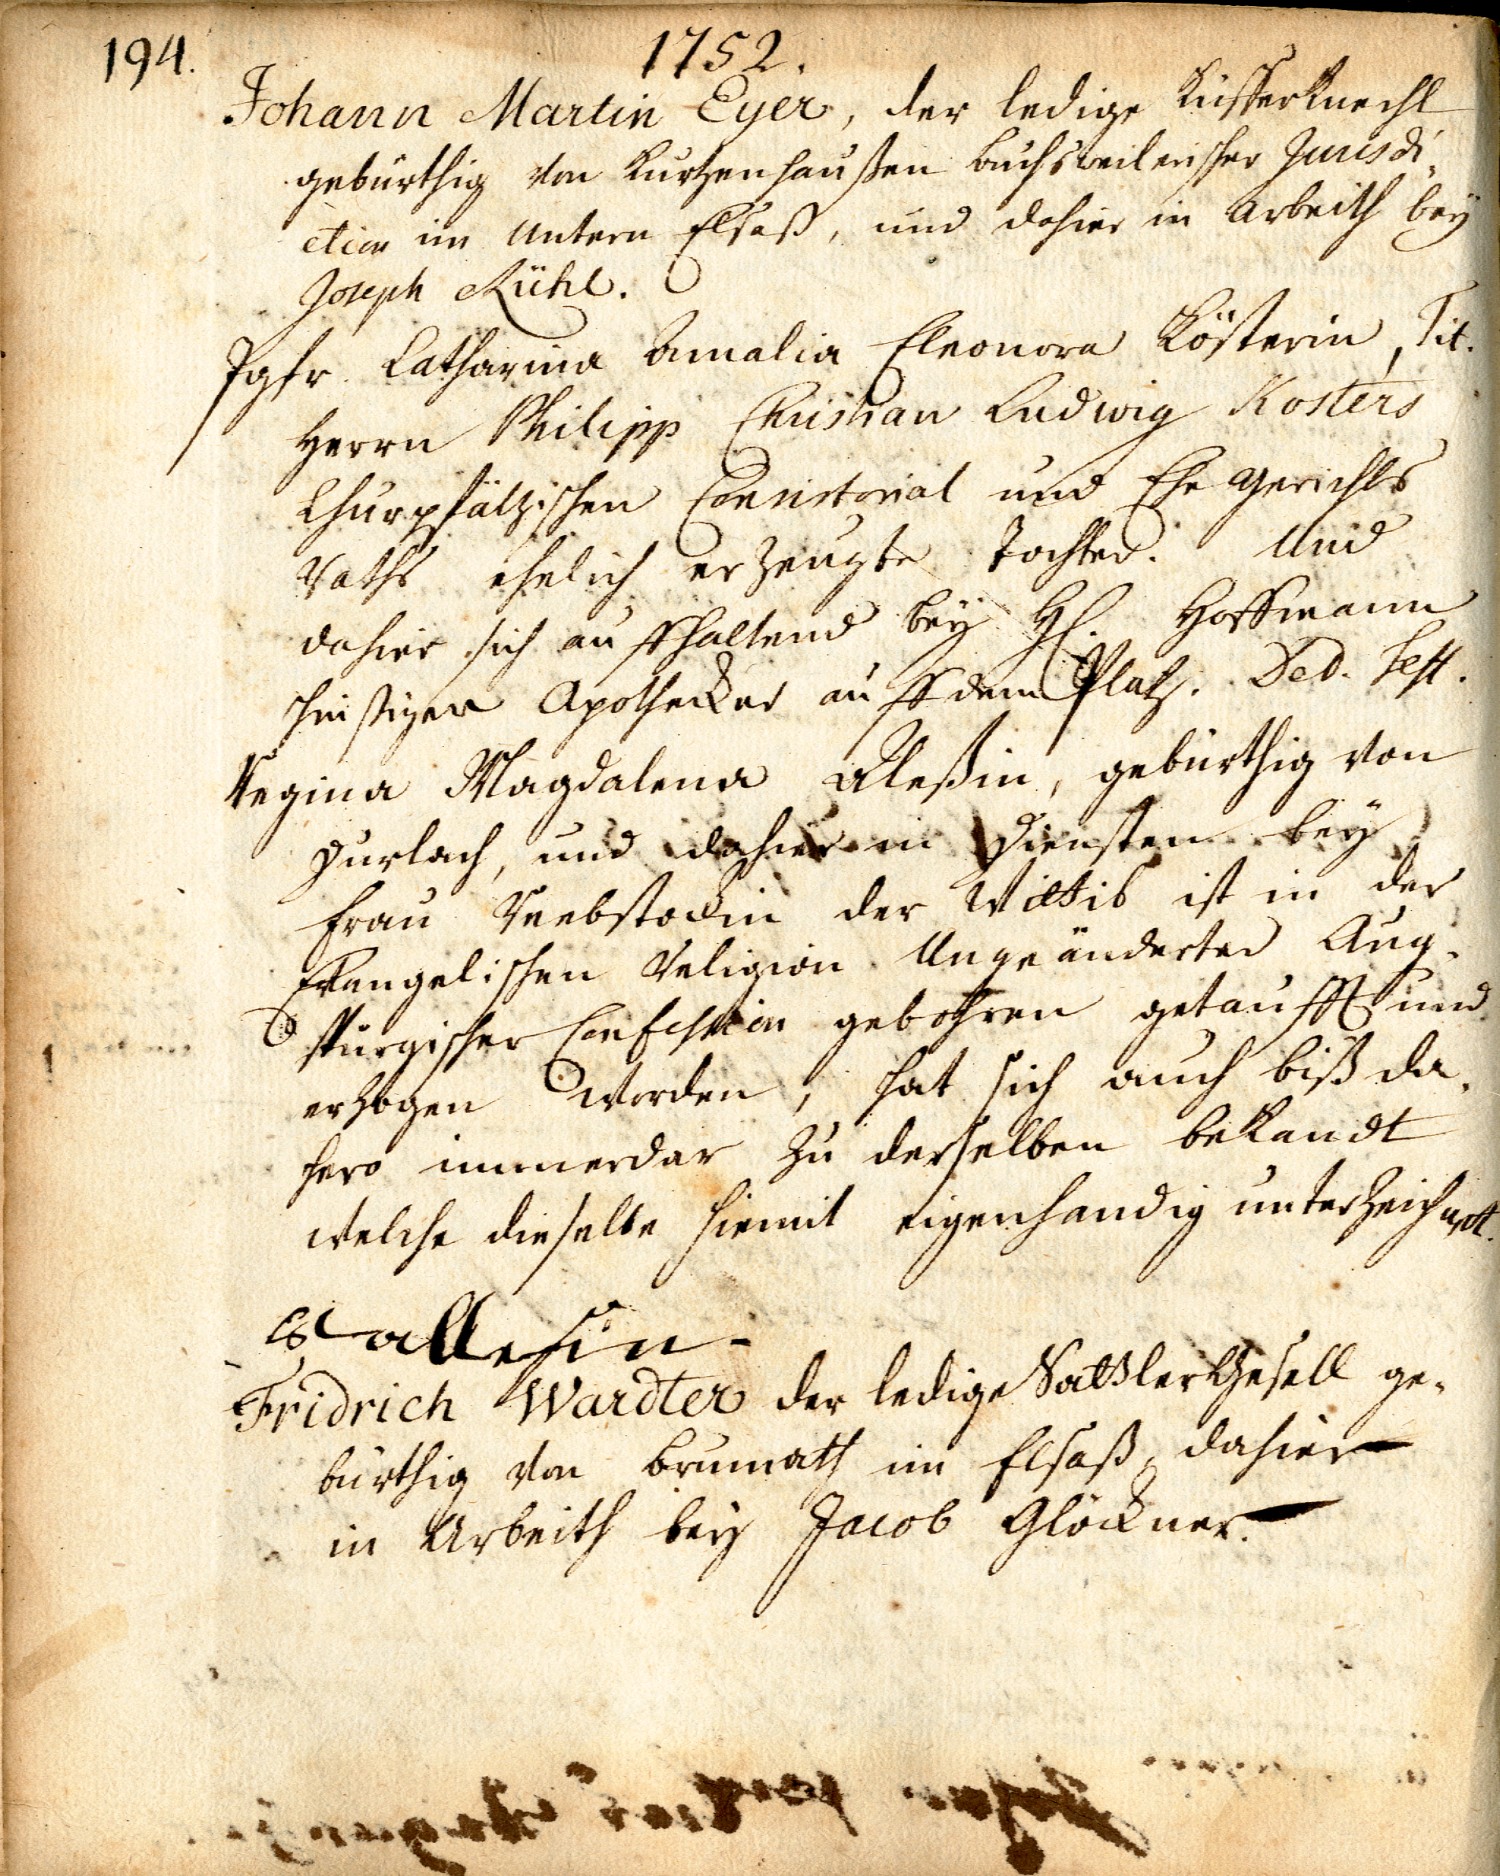 194.
1752.
Johann Martin Eyer, der ledige Küfferknecht
gebürthig von Kurtzenhaußen Buchsweilerischer Jurisdi-
ction im Untern Elsaß, und dahier in Arbeith bey
Joseph Rühl.
Jgfr. Catharina Amalia Eleonora Kösterin, Tit.
Herrn Philipp Christian Ludwig Kosters
Churpfältzischen Consistorial und Ehe Gerichts
Raths ehelich erzeugte Tochter. Und
dahier sich auffhaltend bey H. Hoffmann
hießigen Apothecker auff dem Platz. Ded. Test.
Regina Magdalena Aleßin, gebürthig von
Durlach, und dahier in Diensten bey
Frau Reebstockin der Wittib ist in der
Evangelischen Religion Ungeänderter Aug-
spurgischer Confession gebohren getaufft und
erzogen worden, hat sich auch biß da-
hero immerdar zu derselben bekandt
welche dieselbe hiemit eigenhandig unterzeichnet.
allesin
Fridrich Wardter der ledige Sattler Gesell ge-
bürthig von Brumath im Elsaß, dahier
in Arbeith bey Jacob Glöckner.